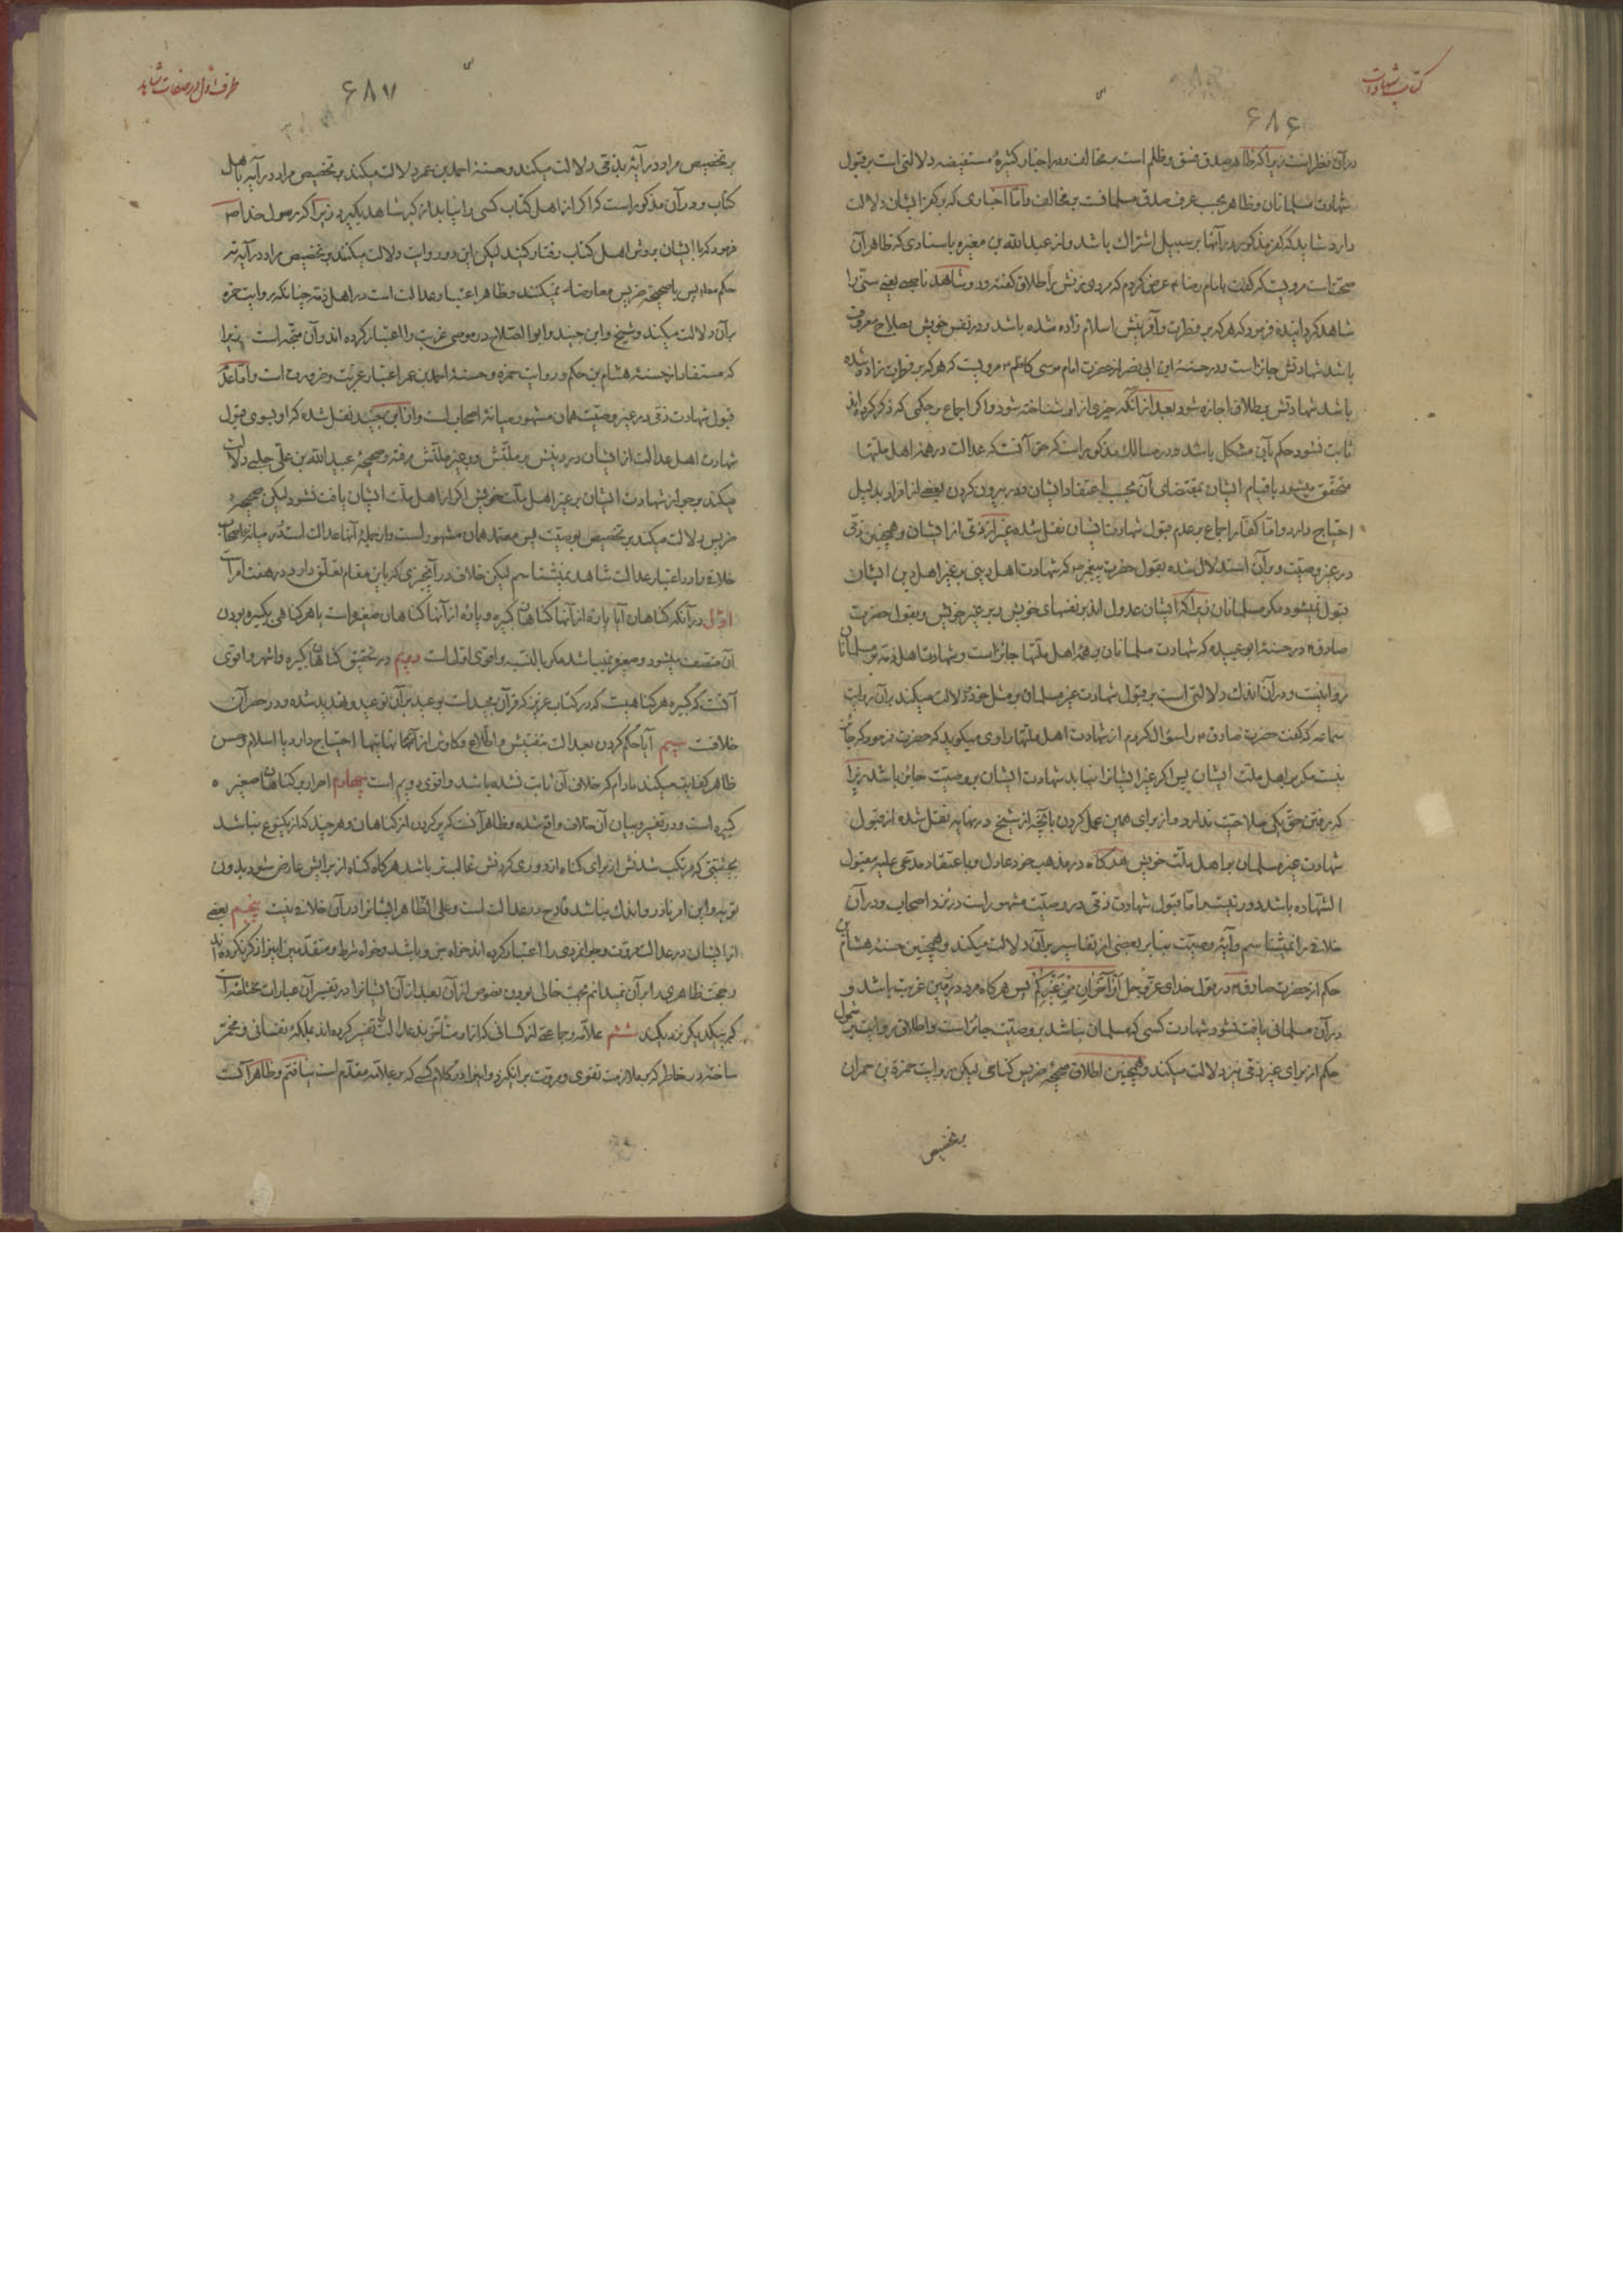 کتاب شهادات
۶۸۶
در آن نظر است زیرا که ظاهر صدق فسق و ظلم است بر مخالف و در اخبار کثیرهٔ مستفیضه دلالتی است بر قبول
شهادت مسلمانان و ظاهر بحسب عرف صدق مسلمانست بر مخالف و اما اخباری که بر کفر ایشان دلالت
دارد شاید که کفر مذکور در آنها بر سبیل اشتراک باشد و از عبد الله بن مغیره باسنادی که ظاهر آن
صحتست مرویست که گفت بامام رضا عرض کردم که مردی زنش را طلاق گفته و دو شاهد ناصبی یعنی سنی را
شاهد گردانیده فرمود که هر که بر فطرت و آفرینش اسلام زاده شده باشد و در نفس خویش بصلاح معروف
باشد شهادتش جائز است و در حسنهٔ ابن ابی نصر از حضرت امام موسی کاظم مرویست که هر که بر فطرت زاده شده
باشد شهادتش بطلاق اجازه شود بعد از آنکه چیزی از او شناخته شود و اگر اجماع بر حکمی که ذکر کرده اند
ثابت نشود حکم بآن مشکل باشد و در مسالک مذکور است که حق آنست که عدالت در همهٔ اهل ملتها
متحقق میشود با قیام ایشان بمقتضای آن بحسب اعتقاد ایشان و در بیرون کردن بعضی از افراد بدلیل
احتیاج دارد و اما کفار اجماع بر عدم قبول شهادت ایشان نقل شده غیر از ذمی از ایشان و همچنین ذمی
در غیر وصیت و بر آن استدلال شده بقول حضرت پیغمبر ص که شهادت اهل دینی بر غیر اهل دین ایشان
قبول نمیشود مگر مسلمانان زیرا که ایشان عدول اند بر نفسهای خویش و بر غیر خویش و بقول حضرت
صادق در حسنهٔ ابو عبیده که شهادت مسلمانان بر همهٔ اهل ملتها جائز است و شهادت اهل ذمه بر مسلمانان
روا نیست و در آن اندک دلالتی است بر قبول شهادت غیر مسلمان بر مثل خود و دلالت میکند بر آن روایت
سماعه که گفت حضرت صادق را سؤال کردم از شهادت اهل ملتها راوی میگوید که حضرت فرمود که جائز
نیست مگر بر اهل ملت ایشان پس اگر غیر ایشانرا نیابد شهادت ایشان بر وصیت جائز باشد زیرا
که برفتن حق یکی صلاحیت ندارد و از برای همین عمل کردن بآنچه از شیخ در نهایه نقل شده از قبول
شهادت غیر مسلمان بر اهل ملت خویش هرگاه در مذهب خود عادل و باعتقاد مدعی علیه مقبول
الشهاده باشد دور نیست اما قبول شهادت ذمی در وصیت مشهور است در نزد اصحاب و در آن
خلافی را نمیشناسم و آیهٔ وصیت بنا بر بعضی از تفاسیر بر آن دلالت میکند و همچنین حسنهٔ هشام بن
حکم از حضرت صادق در قول خدای عز و جل أو آخَرانِ مِنْ غَیْرِکُمْ پس هرگاه مرد در زمین غربت باشد و
در آن مسلمانی یافت نشود شهادت کسی که مسلمان نباشد بر وصیت جائز است و اطلاق روایت بر شمول
حکم از برای غیر ذمی نیز دلالت میکند و همچنین اطلاق صحیحهٔ ضریس کناسی لیکن روایت حمزة بن حمران
بر تخصیص
طرف اول در صفات شاهد
۶۸۷
بر تخصیص مراد در آیه بذمی دلالت میکند و حسنهٔ احمد بن عمر دلالت میکند بر تخصیص مراد در آیه باهل
کتاب و در آن مذکور است که اگر از اهل کتاب کسی را نیابد از گبر شاهد بگیرد زیرا که رسول خدا ص
فرمود که با ایشان بروش اهل کتاب رفتار کنید لیکن این دو روایت دلالت میکنند بر تخصیص مراد در آیه نه
حکم مطلقا پس با صحیحهٔ ضریس معارضه نمیکنند و ظاهر اعتبار عدالت است در اهل ذمه چنانکه روایت حمزه
بر آن دلالت میکند و شیخ و ابن جنید و ابو الصلاح در موصی غربت را اعتبار کرده اند و آن متجه است زیرا
که مستفاد از حسنهٔ هشام بن حکم و روایت حمزه و حسنهٔ احمد بن عمر اعتبار غربت و ضرورتست و اما عدم
قبول شهادت ذمی در غیر وصیت همان مشهور میانهٔ اصحاب است و از ابن جنید نقل شده که او بسوی قبول
شهادت اهل عدالت از ایشان در دینش بر ملتش و بر غیر ملتش رفته و صحیحهٔ عبید الله بن علی حلبی دلالت
میکند بر جواز شهادت ایشان بر غیر اهل ملت خویش اگر از اهل ملت ایشان یافت نشود لیکن صحیحهٔ
ضریس دلالت میکند بر تخصیص بوصیت پس معتمد همان مشهور است و از جملهٔ آنها عدالت است و در میانهٔ اصحاب
خلافی را در اعتبار عدالت شاهد نمیشناسم لیکن خلاف در آنچیزی که باین مقام تعلق دارد در هفت امر است
اول در آنکه گناهان آیا پارهٔ از آنها گناهان کبیره و پارهٔ از آنها گناهان صغیره است یا هر گناهی بکبیره بودن
آن متصف میشود و صغیره نمیباشد مگر بالنسبه و اقوی اول است دویم در تحقیق گناهان کبیره و اشهر و اقوی
آنست که کبیره هر گناهیست که در کتاب عزیز که قرآن مجید است بوعید بر آن توعید و تهدید شده و در حصر آن
خلافست سیم آیا حکم کردن بعدالت بتفتیش و اطلاع و کاوش از آنجا بنهایتها احتیاج دارد یا اسلام و حسن
ظاهر کفایت میکند مادام که خلاف آن ثابت نشده باشد و اقوی دویم است چهارم اصرار بر گناهان صغیره
کبیره است و در تفسیر و بیان آن خلاف واقع شده و ظاهر آنست که پر کردن از گناهان و هر چند که از یکنوع نباشد
بحیثیتی که مرتکب شدنش از برای گناه از دوری کردنش غالب تر باشد هرگاه گناه از برایش عارض شود بدون
توبه و این امر نادر و اندک نباشد قادح در عدالت است و علی الظاهر ایشانرا در آن خلافی نیست پنجم بعضی
از ایشان در عدالت مروت و جوانمردی را اعتبار کرده اند خواه جزو باشد و خواه شرط و متقدمین اینرا ذکر نکرده اند
و حجت ظاهری را بر آن نمیدانم بجهت خالی بودن نصوص از آن بعد از آن ایشانرا در تفسیر آن عبارات مختلفه است
که بیکدیگر نزدیکند ششم علامه و جماعتی از کسانی که از او متأخرند عدالت را تفسیر کرده اند بملکهٔ نفسانی و مخمر
ساخته در خاطر که بملازمت تقوی و مروت برانگیزد و اینرا در کلام کسی که بر علامه مقدم است نیافتم و ظاهر آنست